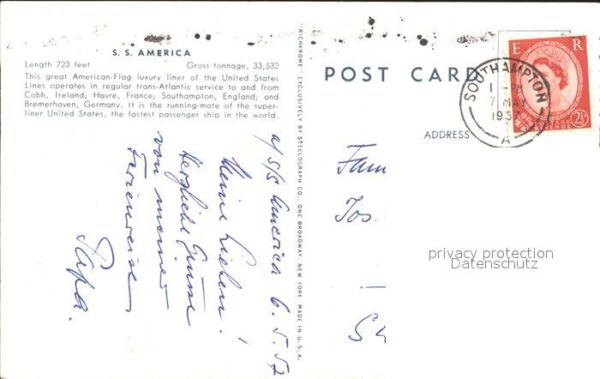 S. S. AMERICA
Length 723 feet Gross tonnage, 33,532
This great American-Flag luxury liner of the United States
Lines operates in regular trans-Atlantic service to and from
Cobh, Ireland; Havre, France; Southampton, England; and
Bremerhaven, Germany. It is the running-mate of the super-
liner United States, the fastest passenger ship in the world.
a/s/s America 6.5.57
Meine Lieben!
Herzliche Grüsse
von meiner
Ferienreise
Papa.
"RICHROME" EXCLUSIVELY BY STEELOGRAPH CO., ONE BROADWAY, NEW YORK. MADE IN U.S.A.
POST CARD
ADDRESS
E R
2½
SOUTHAMPTON
7 MAY
195
A
Fam
Jos.
privacy protection
Datenschutz